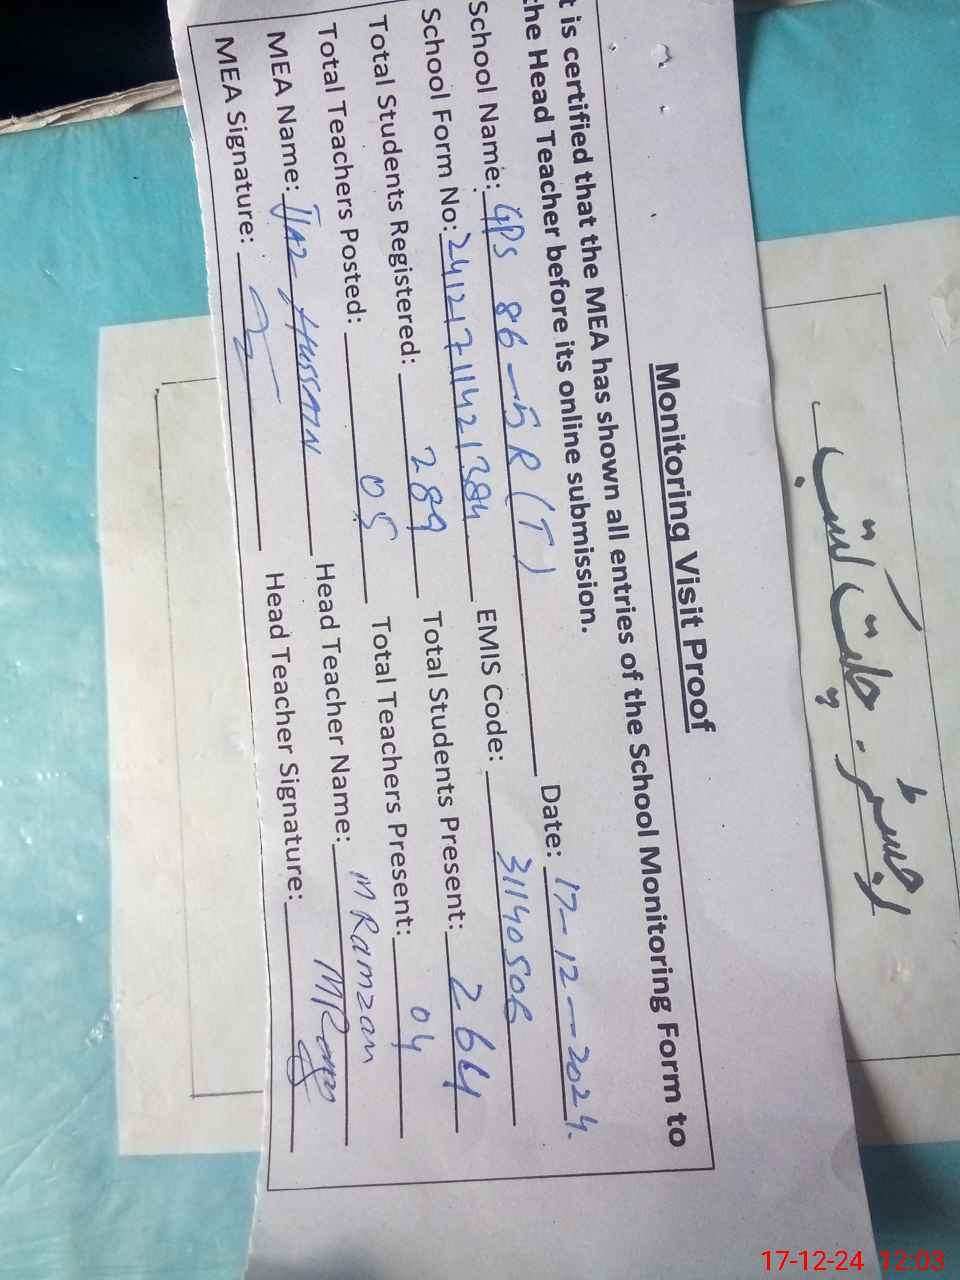 Monitoring Visit Proof
t is certified that the MEA has shown all entries of the School Monitoring Form to
the Head Teacher before its online submission.
School Name: GPS 86-5R (T) Date: 17-12-2024.
School Form No: EMIS Code: 31140506
Total Students Registered: 289 Total Students Present: 264
Total Teachers Posted: 05 Total Teachers Present: 04
MEA Name: Hussain Head Teacher Name: M Ramzan
MEA Signature: Head Teacher Signature:
رجسٹر
17-12-24 12:03